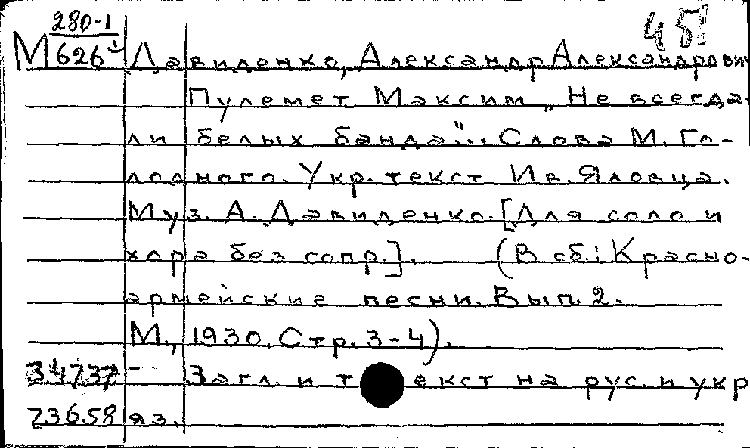 280-1 45!
М 626 Давиденко, Александр Александрович
Пулемет Максим „Не всегда
ли белых банда"... Слова М. Го-
лодного. Укр. текст Ив. Яловца.
Муз. А. Давиденко. [Для соло и
хора без сопр.]. (В сб.: Красно-
армейские песни. Вып. 2.
М., 1930. Стр. 3-4).
34737 Загл. и текст на рус. и укр
236.58 яз.